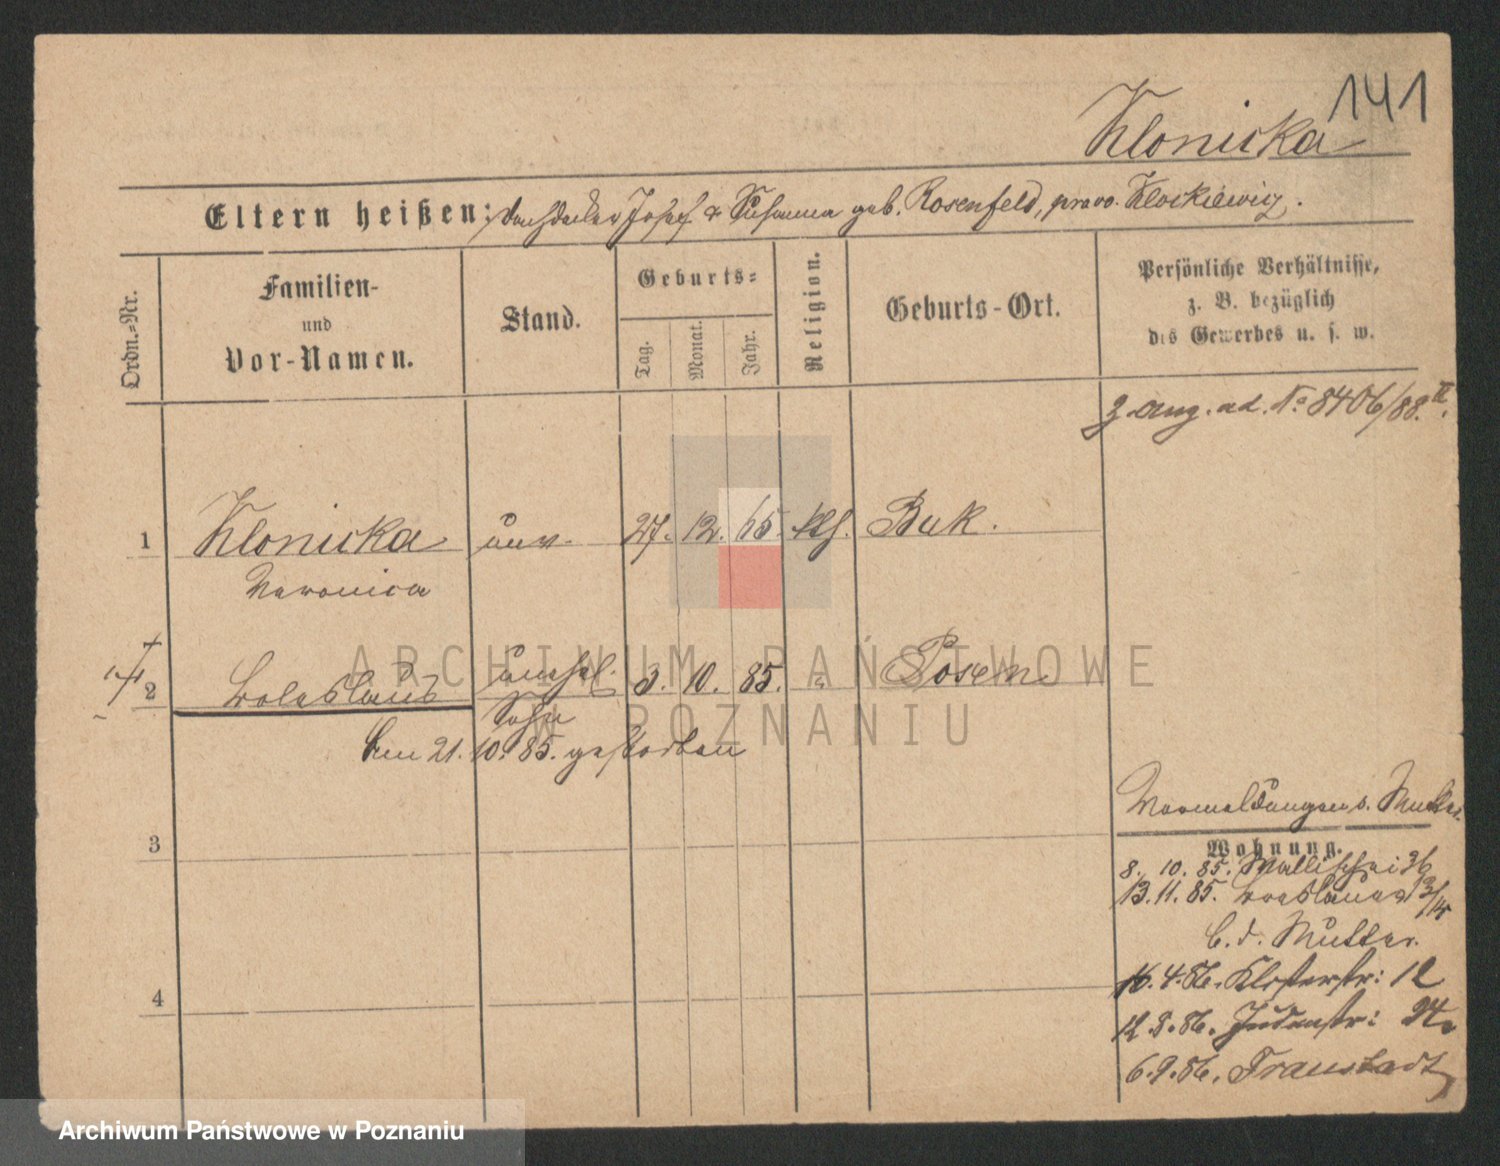 141
Klonicka
Eltern heißen: Dachdecker Josef & Susanna geb. Rosenfeld, provo. Klockiewicz.
Ordn.-Nr.
Familien-
und
Vor-Namen.
Stand.
Geburts-
Tag.
Monat.
Jahr.
Religion.
Geburts-Ort.
Persönliche Verhältnisse,
z. B. bezüglich
des Gewerbes u. s. w.
z. Ang. ad. No 8406/88. II.
1 Klonicka unv. 27. 12. 65. kth. Buk.
Veronica
2 Boleslaus unehel. 3. 10. 85. " Posen
Sohn
den 21. 10. 85. gestorben
3
4
Vormeldungen s. Mutter.
Wohnung.
8. 10. 85. Wallischei 36
13. 11. 85. Breslauer 13/14
b. d. Mutter.
16. 4. 86. Klosterstr: 12
12. 8. 86. Judenstr: 24.
6. 9. 86. Fraustadt
ARCHIWUM PAŃSTWOWE
W POZNANIU
Archiwum Państwowe w Poznaniu